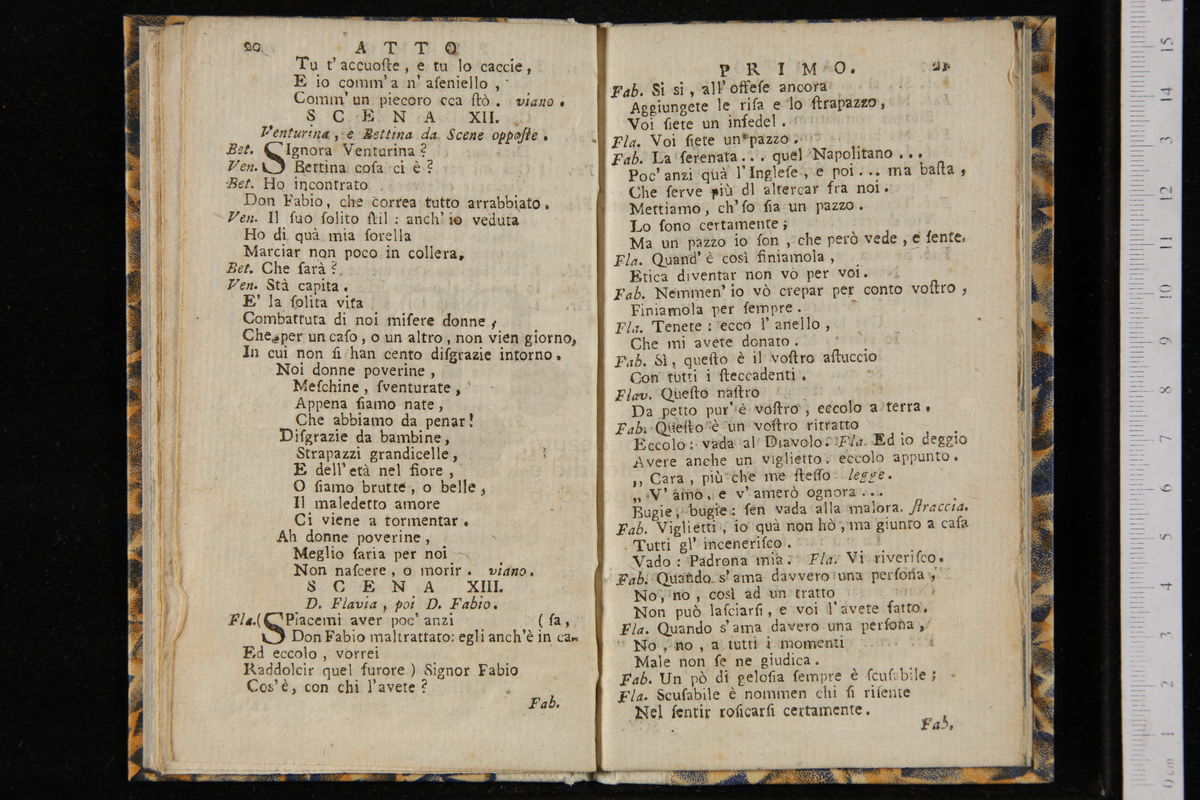 20 ATTO
Tu t'accuoſte, e tu lo caccie,
E io comm'a n'aſeniello,
Comm'un piecoro cca ſtò. viano.
SCENA XII.
Venturina, e Bettina da Scene oppoſte.
Bet. SIgnora Venturina?
Ven. Bettina coſa ci è?
Bet. Ho incontrato
Don Fabio, che correa tutto arrabbiato.
Ven. Il ſuo ſolito ſtil: anch'io veduta
Ho di quà mia ſorella
Marciar non poco in collera.
Bet. Che ſarà?
Ven. Stà capita.
E' la ſolita vita
Combattuta di noi miſere donne,
Che per un caſo, o un altro, non vien giorno,
In cui non ſi han cento diſgrazie intorno.
Noi donne poverine,
Meſchine, ſventurate,
Appena ſiamo nate,
Che abbiamo da penar!
Diſgrazie da bambine,
Strapazzi grandicelle,
E dell'età nel fiore,
O ſiamo brutte, o belle,
Il maledetto amore
Ci viene a tormentar.
Ah donne poverine,
Meglio ſaria per noi
Non naſcere, o morir. viano.
SCENA XIII.
D. Flavia, poi D. Fabio.
Fla. (SPiacemi aver poc'anzi (ſa,
Don Fabio maltrattato: egli anch'è in ca-
Ed eccolo, vorrei
Raddolcir quel furore) Signor Fabio
Cos'è, con chi l'avete?
Fab.
PRIMO. 21
Fab. Si si, all'offeſe ancora
Aggiungete le riſa e lo ſtrapazzo,
Voi ſiete un infedel.
Fla. Voi ſiete un pazzo.
Fab. La ſerenata... quel Napolitano...
Poc'anzi quà l'Ingleſe, e poi... ma baſta,
Che ſerve più dl altercar fra noi.
Mettiamo, ch'ſo ſia un pazzo.
Lo ſono certamente;
Ma un pazzo io ſon, che però vede, e ſente.
Fla. Quand'è così finiamola,
Etica diventar non vò per voi.
Fab. Nemmen'io vò crepar per conto voſtro,
Finiamola per ſempre.
Fla. Tenete: ecco l'anello,
Che mi avete donato.
Fab. Sì, queſto è il voſtro aſtuccio
Con tutti i ſteccadenti.
Flav. Queſto naſtro
Da petto pur'è voſtro, eccolo a terra.
Fab. Queſto è un voſtro ritratto
Eccolo: vada al Diavolo. Fla. Ed io deggio
Avere anche un viglietto: eccolo appunto.
,, Cara, più che me ſteſſo legge.
,, V'amo, e v'amerò ognora...
Bugie, bugie: ſen vada alla malora. ſtraccia.
Fab. Viglietti, io quà non hò, ma giunto a caſa
Tutti gl'inceneriſco.
Vado: Padrona mia. Fla. Vi riveriſco.
Fab. Quando s'ama davvero una perſona,
No, no, così ad un tratto
Non può laſciarſi, e voi l'avete fatto.
Fla. Quando s'ama davero una perſona,
No, no, a tutti i momenti
Male non ſe ne giudica.
Fab. Un pò di geloſia ſempre è ſcuſabile;
Fla. Scuſabile è nommen chi ſi riſente
Nel ſentir roſicarſi certamente.
Fab.